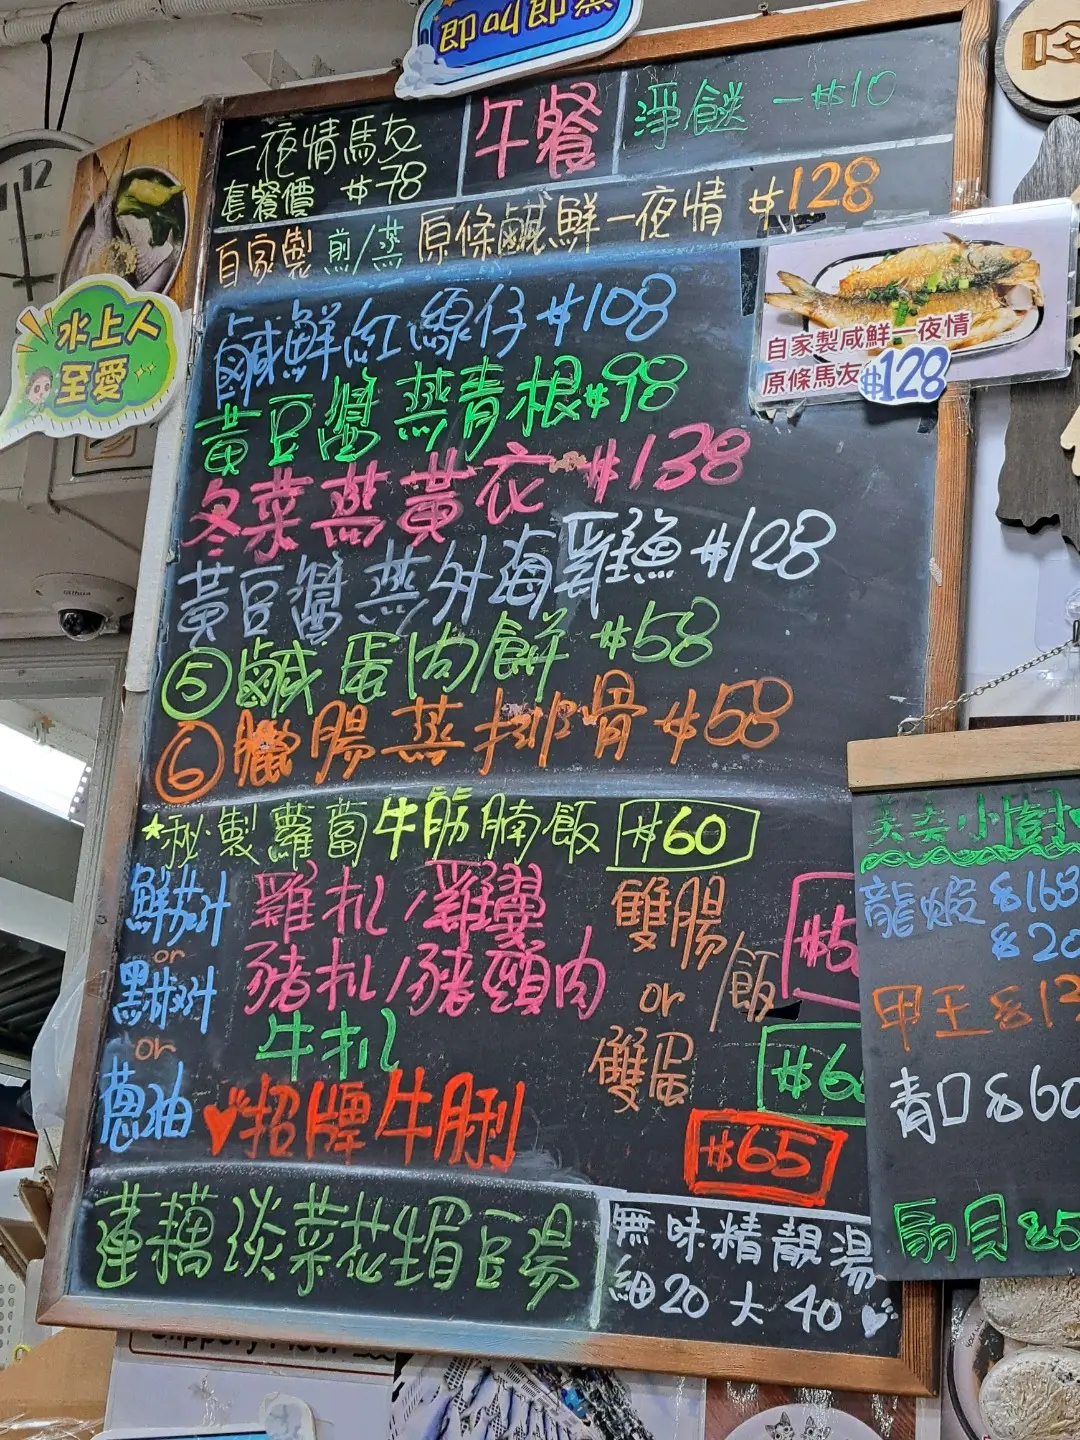 即叫即蒸
一夜情馬友
套餐價 $78
午餐
淨餸 -$10
自家製 煎/蒸 原條鹹鮮一夜情 $128
12
水上人
至愛
自家製咸鮮一夜情
原條馬友 $128
鹹鮮紅線仔 $108
黃豆醬蒸青根 $98
冬菜蒸黃衣 $138
黃豆醬蒸外海雞魚 $128
⑤鹹蛋肉餅 $58
⑥臘腸蒸排骨 $58
★秘製蘿蔔牛筋腩飯 $60
鮮茄汁
or
黑椒汁
or
蔥油
雞扒/雞翼
豬扒/豬頸肉
牛扒
♥招牌牛脷
雙腸
or
雙蛋
/飯
$65
蓮藕淡菜花生眉豆湯
無味精靚湯
細20 大40
龍蝦 $168
青口 $60
扇貝
Slippery Floor